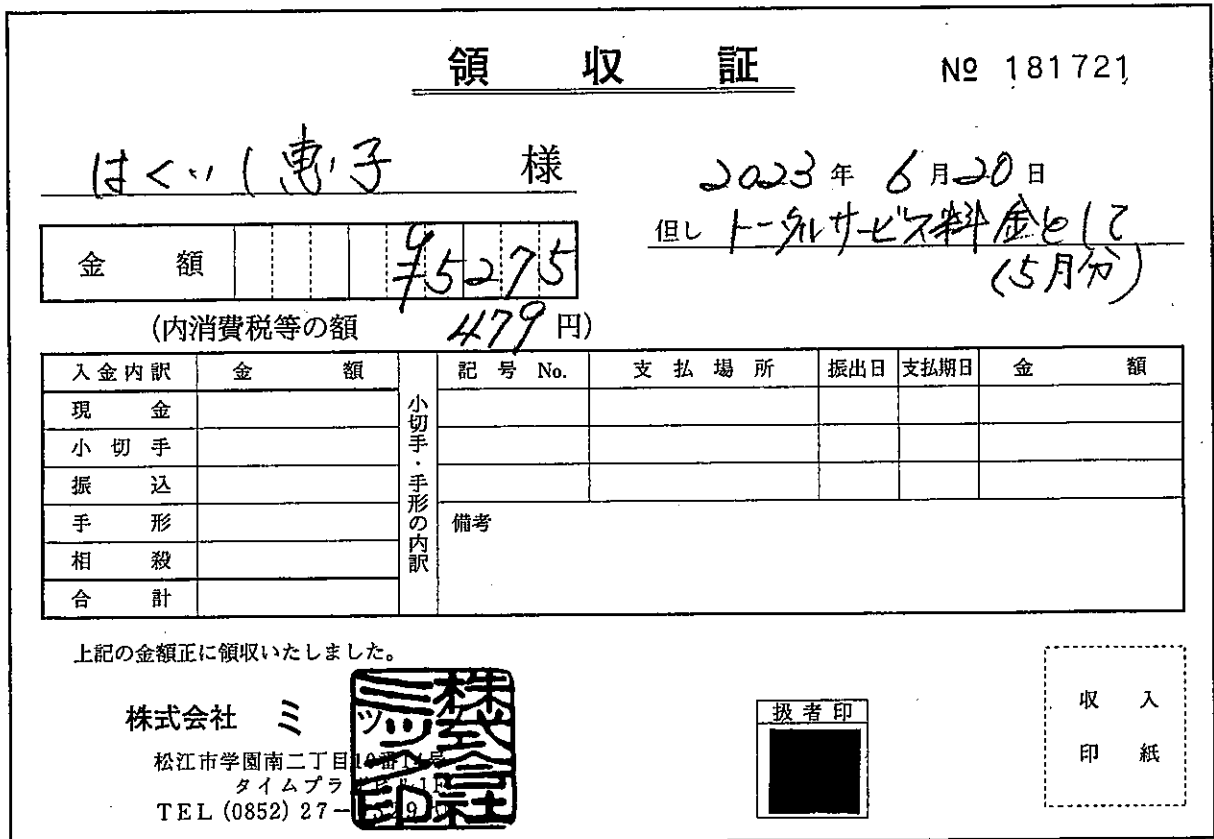 領収証
№ 181721
はくいし恵子 様
2023年 6月20日
但し トータルサービス料金として
(5月分)
金額 ¥5275
(内消費税等の額 479円)
入金内訳 金額
現金
小切手
振込
手形
相殺
合計
小切手・手形の内訳
記号 No. 支払場所 振出日 支払期日 金額
備考
上記の金額正に領収いたしました。
株式会社 ミツ
株式会社ミック印
松江市学園南二丁目
タイムプラ
TEL (0852) 27-
扱者印
収入
印紙